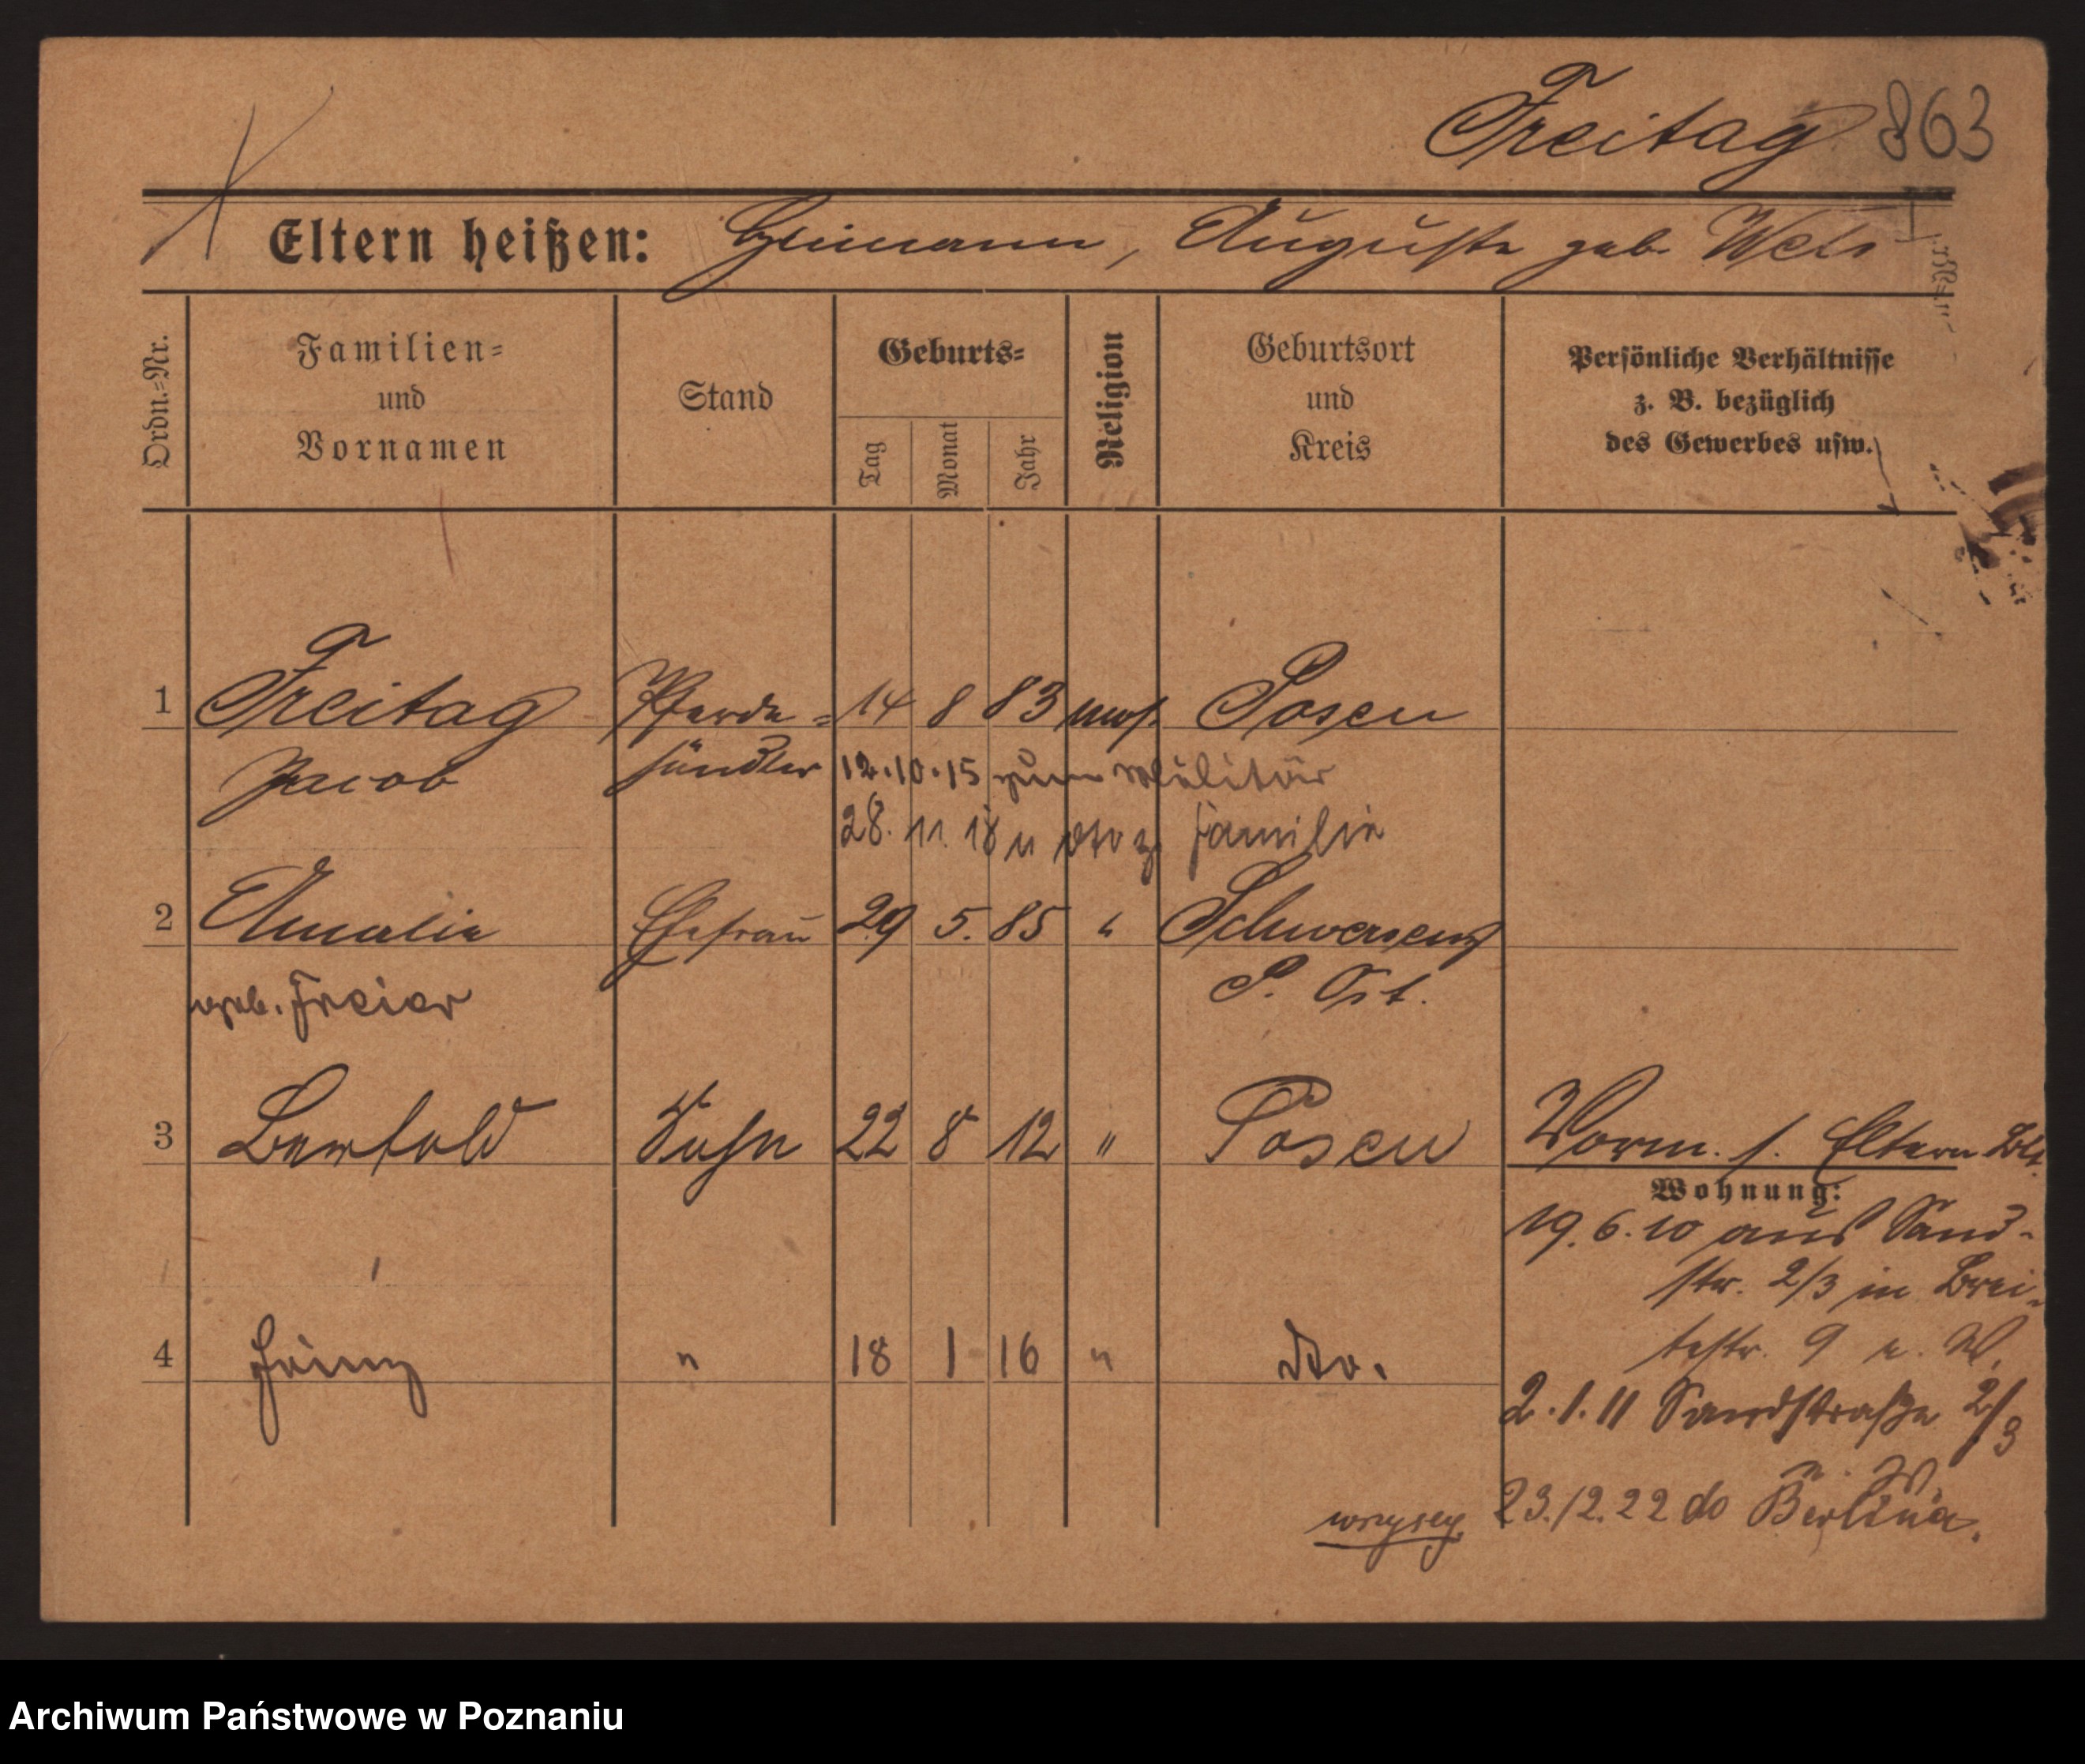 Freitag 863
Eltern heißen: Heimann, Auguste geb. Wels
Ordn.-Nr.
Familien-
und
Vornamen
Stand
Geburts-
Tag
Monat
Jahr
Religion
Geburtsort
und
Kreis
Persönliche Verhältnisse
z. B. bezüglich
des Gewerbes usw.
1 Freitag Pferde- 14 8 83 mos. Posen
Jacob händler 12.10.15 zum Militär
28. 11. 18 z. Familie
2 Amalie Ehefrau 29 5. 85 " Schwersenz
P. Ost.
geb. Freier
3 Bertold Sohn 22 8 12 " Posen Vorm. s. Eltern
Wohnung:
19.6.10 aus Sand-
str. 2/3 in Brei-
testr. 9 u. W.
4 Heinz " 18 1 16 " dto.
2.1.11 Sandstraße 2/3
23.12.22 do Berlina.